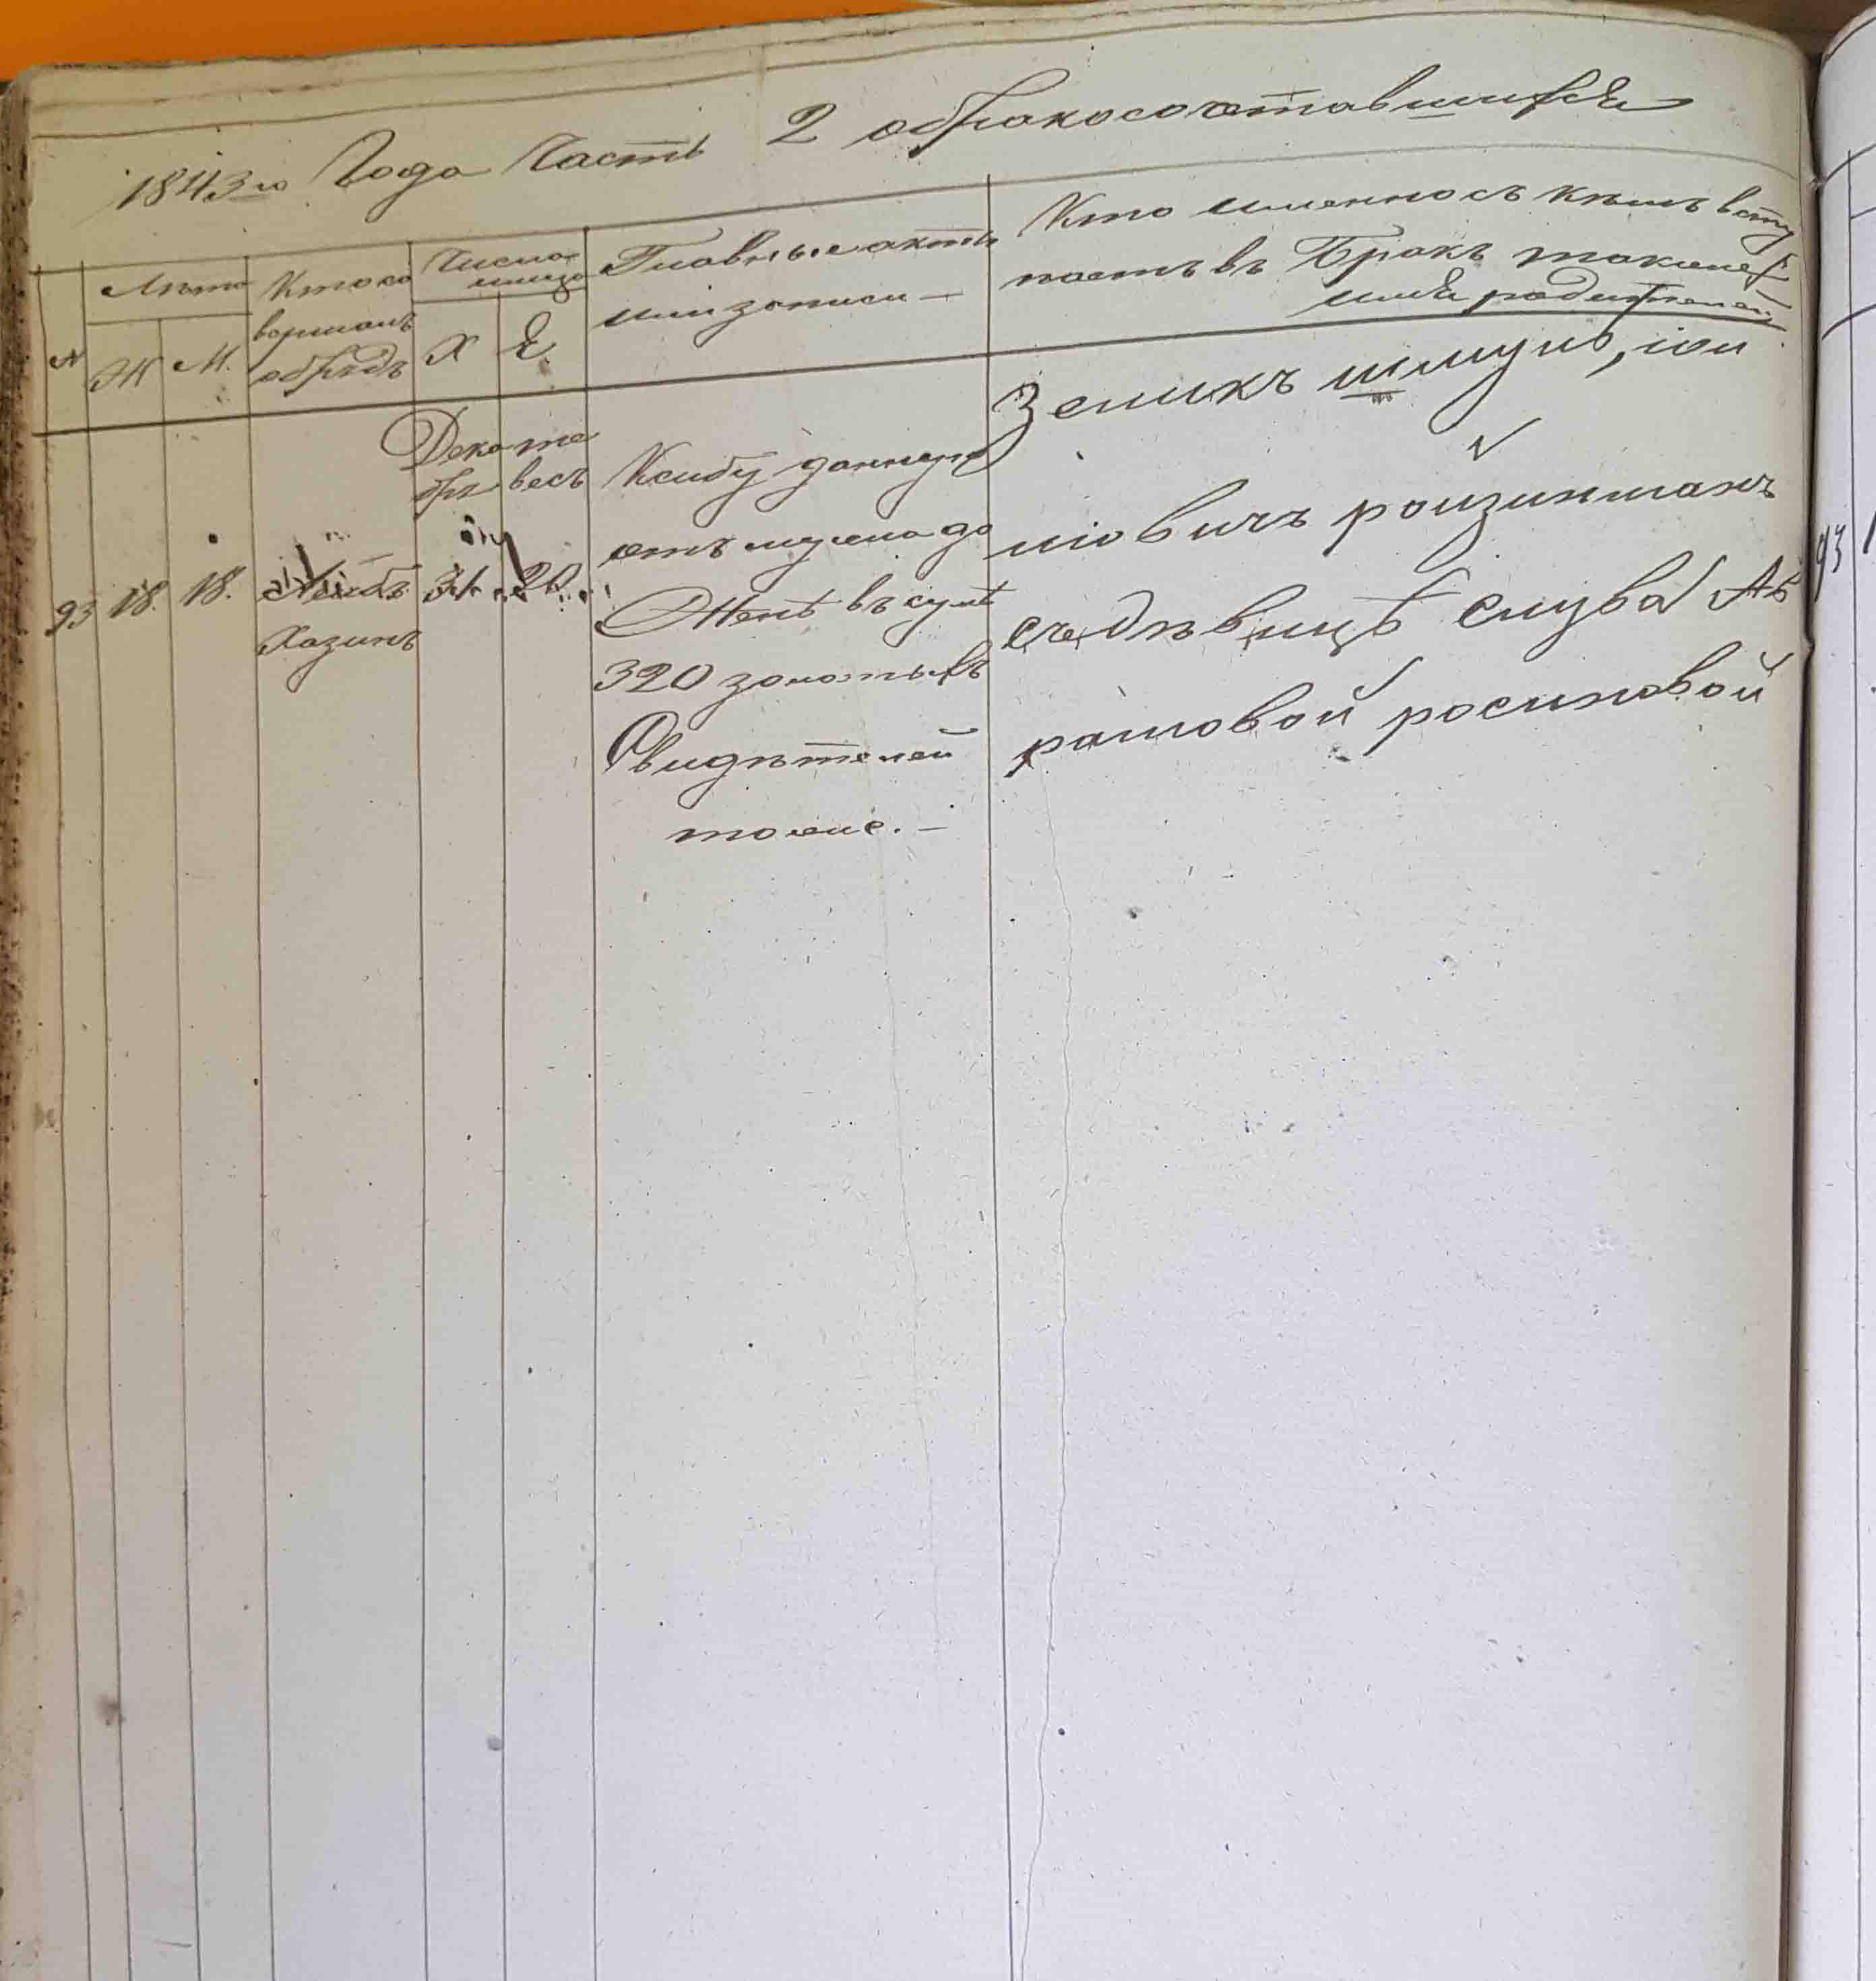 1843го Года Часть 2 обракосочетавшихся
№
Лѣта
Ж М.
Кто со
вершалъ
обрядъ
Число
Х Е
Главные акты
или записи —
Кто именно съ кѣмъ всту
паетъ въ Бракъ также
имя родителей
93 18. 18.
Лейбъ
Хазинъ
Дека
бря
31
те
весъ
20
Ксибу данную
отъ мужа до
Женѣ въ сумѣ
320 золотыхъ
Свидѣтелей
тоже. —
Зеликъ шмуль, іои
ліовичъ роизинманъ
съ дѣвицѣ слува Аб
рамовой росиновой
93